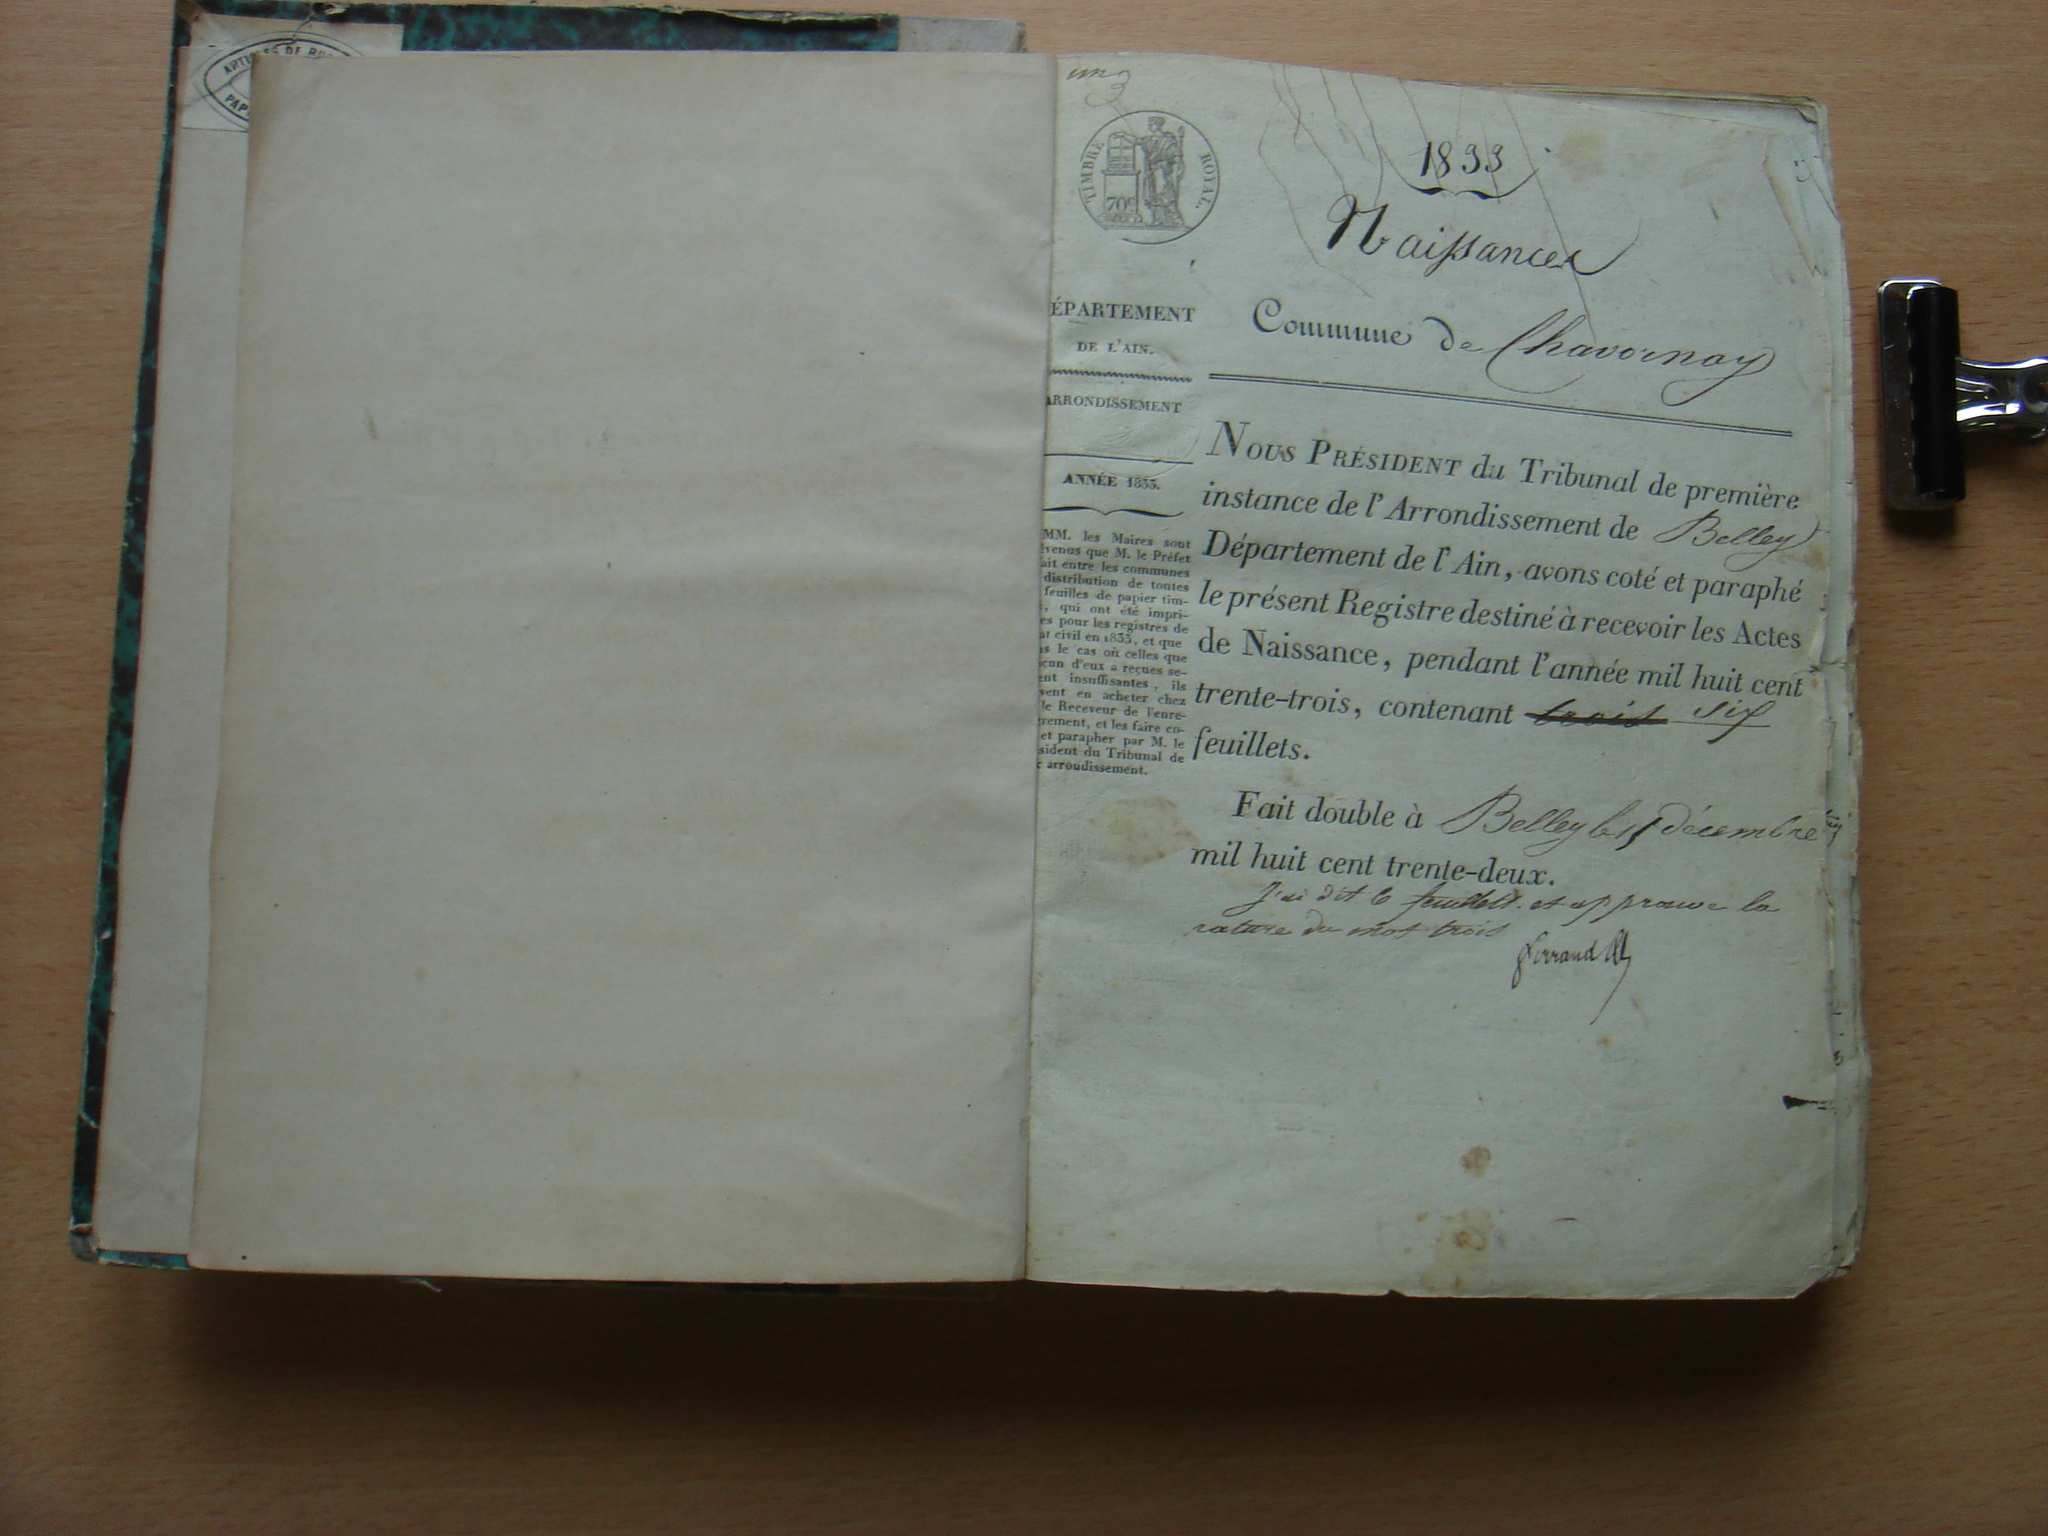 un
TIMBRE ROYAL.
70c
1833
Naissances
DÉPARTEMENT
DE L'AIN.
Commune de Chavornay
ARRONDISSEMENT
ANNÉE 1833.
MM. les Maires sont
venus que M. le Préfet
ait entre les communes
distribution de toutes
feuilles de papier tim-
, qui ont été impri-
es pour les registres de
at civil en 1833, et que
ns le cas où celles que
acun d'eux a reçues se-
ent insuffisantes, ils
vent en acheter chez
le Receveur de l'enre-
trement, et les faire co-
et parapher par M. le
sident du Tribunal de
arrondissement.
NOUS PRÉSIDENT du Tribunal de première
instance de l'Arrondissement de Belley
Département de l'Ain, avons coté et paraphé
le présent Registre destiné à recevoir les Actes
de Naissance, pendant l'année mil huit cent
trente-trois, contenant trois six
feuillets.
Fait double à Belley le décembre
mil huit cent trente-deux.
J'ai dit 6 feuillets et approuve la
rature du mot trois
ARTICLES DE
PAP